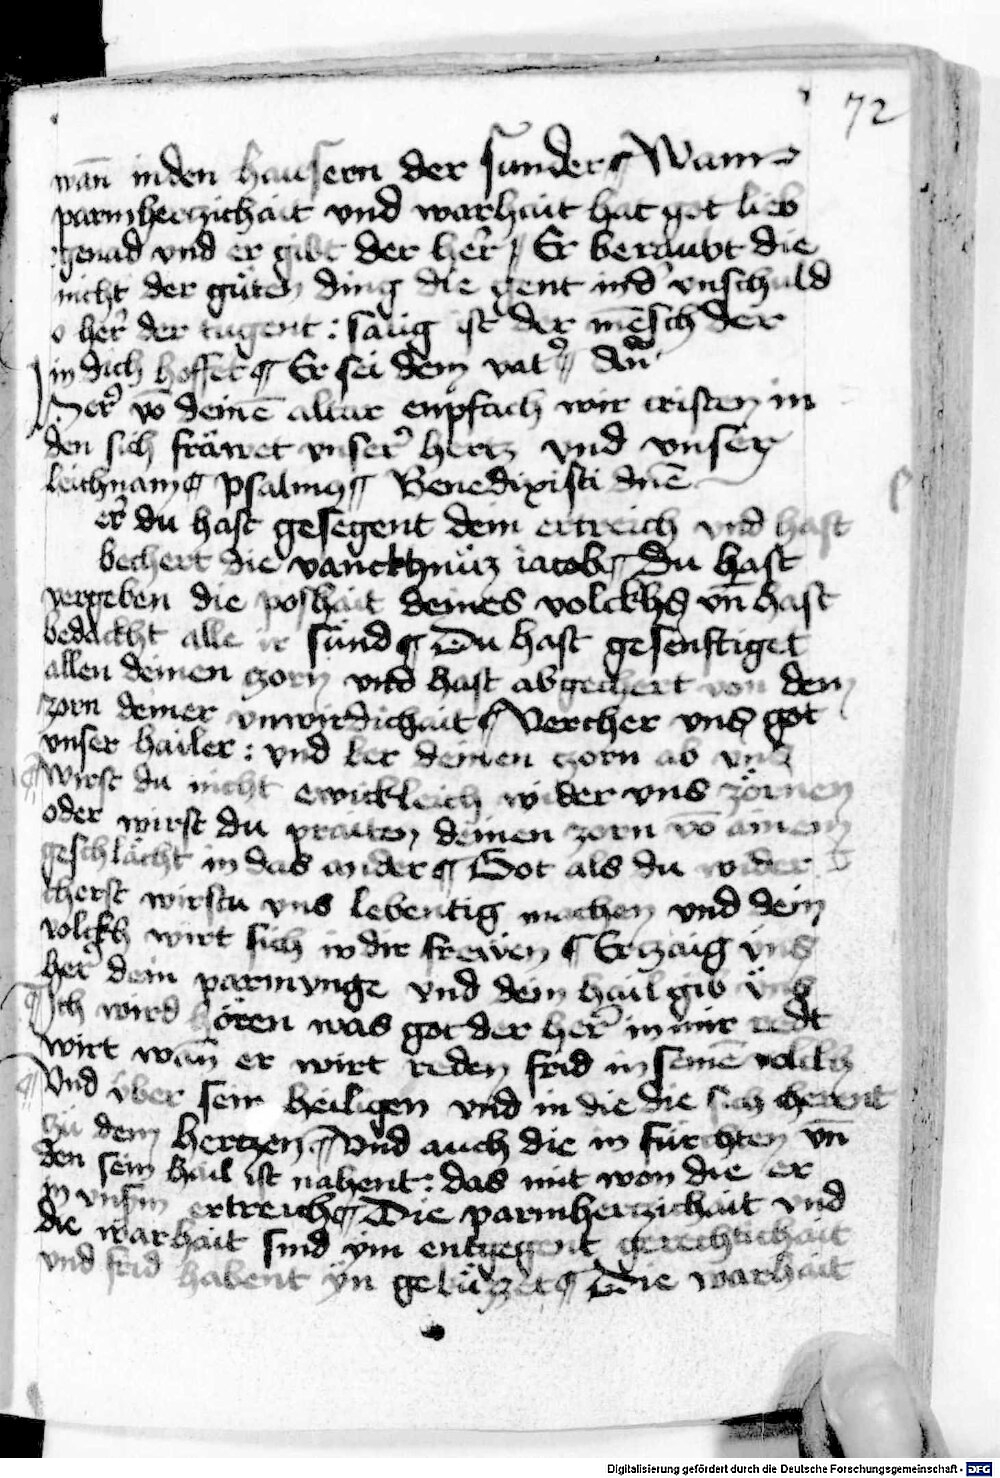 72
wan̄ in den hausern der sunder ¶ Wann
parmherczichait vnd warhait hat got lieb
genad vnd er gibt der her̄ ¶ Er beraubt die
nicht der guͤten ding die gent in d' vnschuld
o her̄ der tugent : salig ist der mēsch der
in dich hoffet ¶ Er sei dem vat' ¶ 
Her' vō deinē altar enpfach wir cristen in
den sich fräwet vnser' hertz vnd vnser
leichnam ¶ psalmus ¶ Benedixisti dn̄e
er' du hast gesegent dein ertreich vnd hast
bechert die vanckhnüz iacob ¶ Du hast
vergeben die poshait deines volckhs vn̄ hast
bedäckht alle ir sünd ¶ Du hast gesenftiget
allen deinen czorn vnd hast abgechert von dem
zorn deiner vnwirdichait ¶ Vercher vns got
vnser hailer : vnd ker deinen czorn ab vns
¶ Wirst du nicht ewickleich wider vns zörnen
oder wirst du praiten deinen zorn vō ainem
geschlächt in das ander ¶ Got als du wider
cherst wirstu vns lebentig machen vnd dein
volckh wirt sich in dir frewen ¶ Erczaig vns
her' dein parmvnge vnd dein hail gib vns
¶ Ich wird hören was got der her' in mir redt
wirt wan̄ er wirt reden frid in seinē volckh
¶ Vnd vber sein heiligen vnd in die die sich cherent
zu dem hertzen ¶ Vnd auch die in fürchten vn̄
den sein hail ist nahent : das mit won die er
in vnserm ertreich ¶ Die parmherczichait vnd
die warhait sind ym entgegent gerechtichait
vnd frid habent yn geküzzet ¶ Die warhait
Digitalisierung gefördert durch die Deutsche Forschungsgemeinschaft - DFG